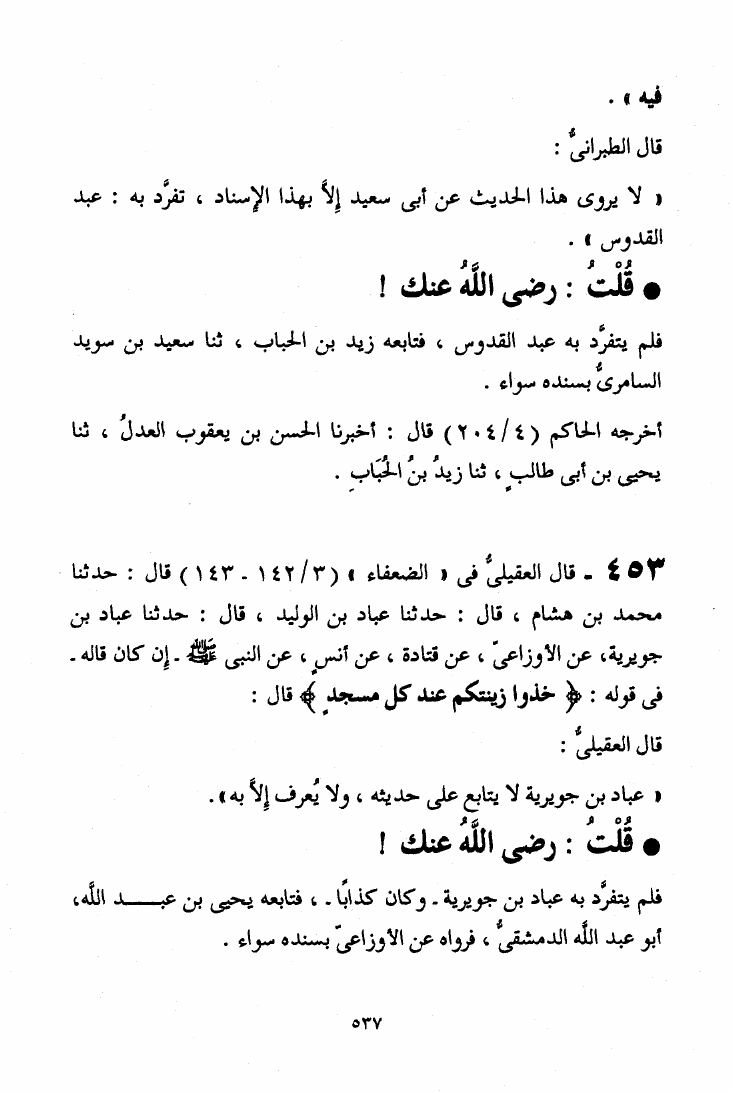 فيه » .
قال الطبرانىُّ :
« لا يروى هذا الحديث عن أبى سعيد إلاَّ بهذا الإسناد ، تفرَّد به : عبد
القدوس » .
● قُلْتُ : رضى اللَّهُ عنك !
فلم يتفرَّد به عبد القدوس ، فتابعه زيد بن الحباب ، ثنا سعيد بن سويد
السامرىُّ بسنده سواء .
أخرجه الحاكم (٢٠٤/٤) قال : أخبرنا الحسن بن يعقوب العدلُ ، ثنا
يحيى بن أبى طالبٍ ، ثنا زيدُ بنُ الحُبَابِ .
٤٥٣ ـ قال العقيلىُّ فى « الضعفاء » (١٤٢/٣ ـ ١٤٣) قال : حدثنا
محمد بن هشام ، قال : حدثنا عباد بن الوليد ، قال : حدثنا عباد بن
جويرية، عن الأوزاعىّ ، عن قتادة ، عن أنسٍ ، عن النبى ﷺ ـ إن كان قاله ـ
فى قوله : ﴿ خذوا زينتكم عند كل مسجدٍ ﴾ قال :
قال العقيلىُّ :
« عباد بن جويرية لا يتابع على حديثه ، ولا يُعرف إلاَّ به».
● قُلْتُ : رضى اللَّهُ عنك !
فلم يتفرَّد به عباد بن جويرية ـ وكان كذابًا ـ ، فتابعه يحيى بن عبـــد اللَّه،
أبو عبد اللَّه الدمشقىُّ ، فرواه عن الأوزاعىّ بسنده سواء .
٥٣٧